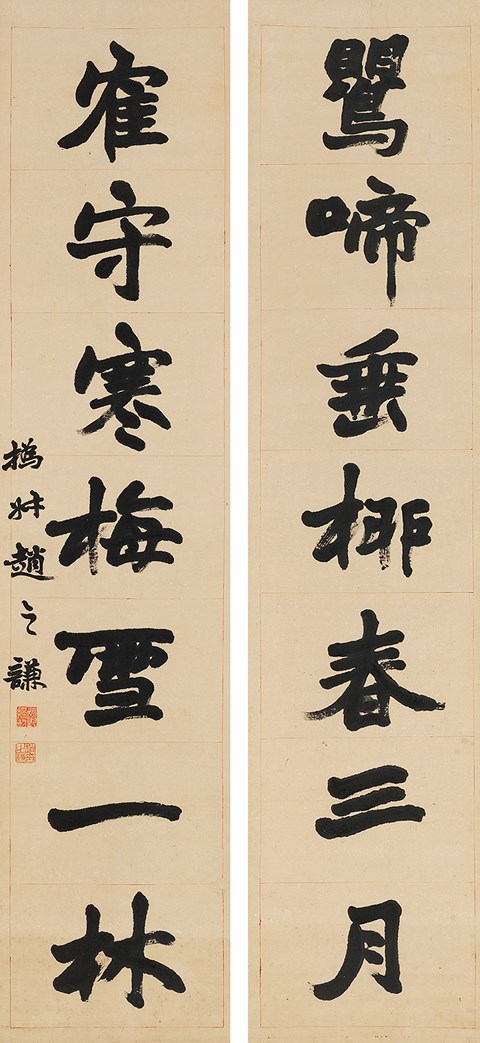 鸎啼垂桺春三月
寉守寒梅雪一林
撝叔趙之謙